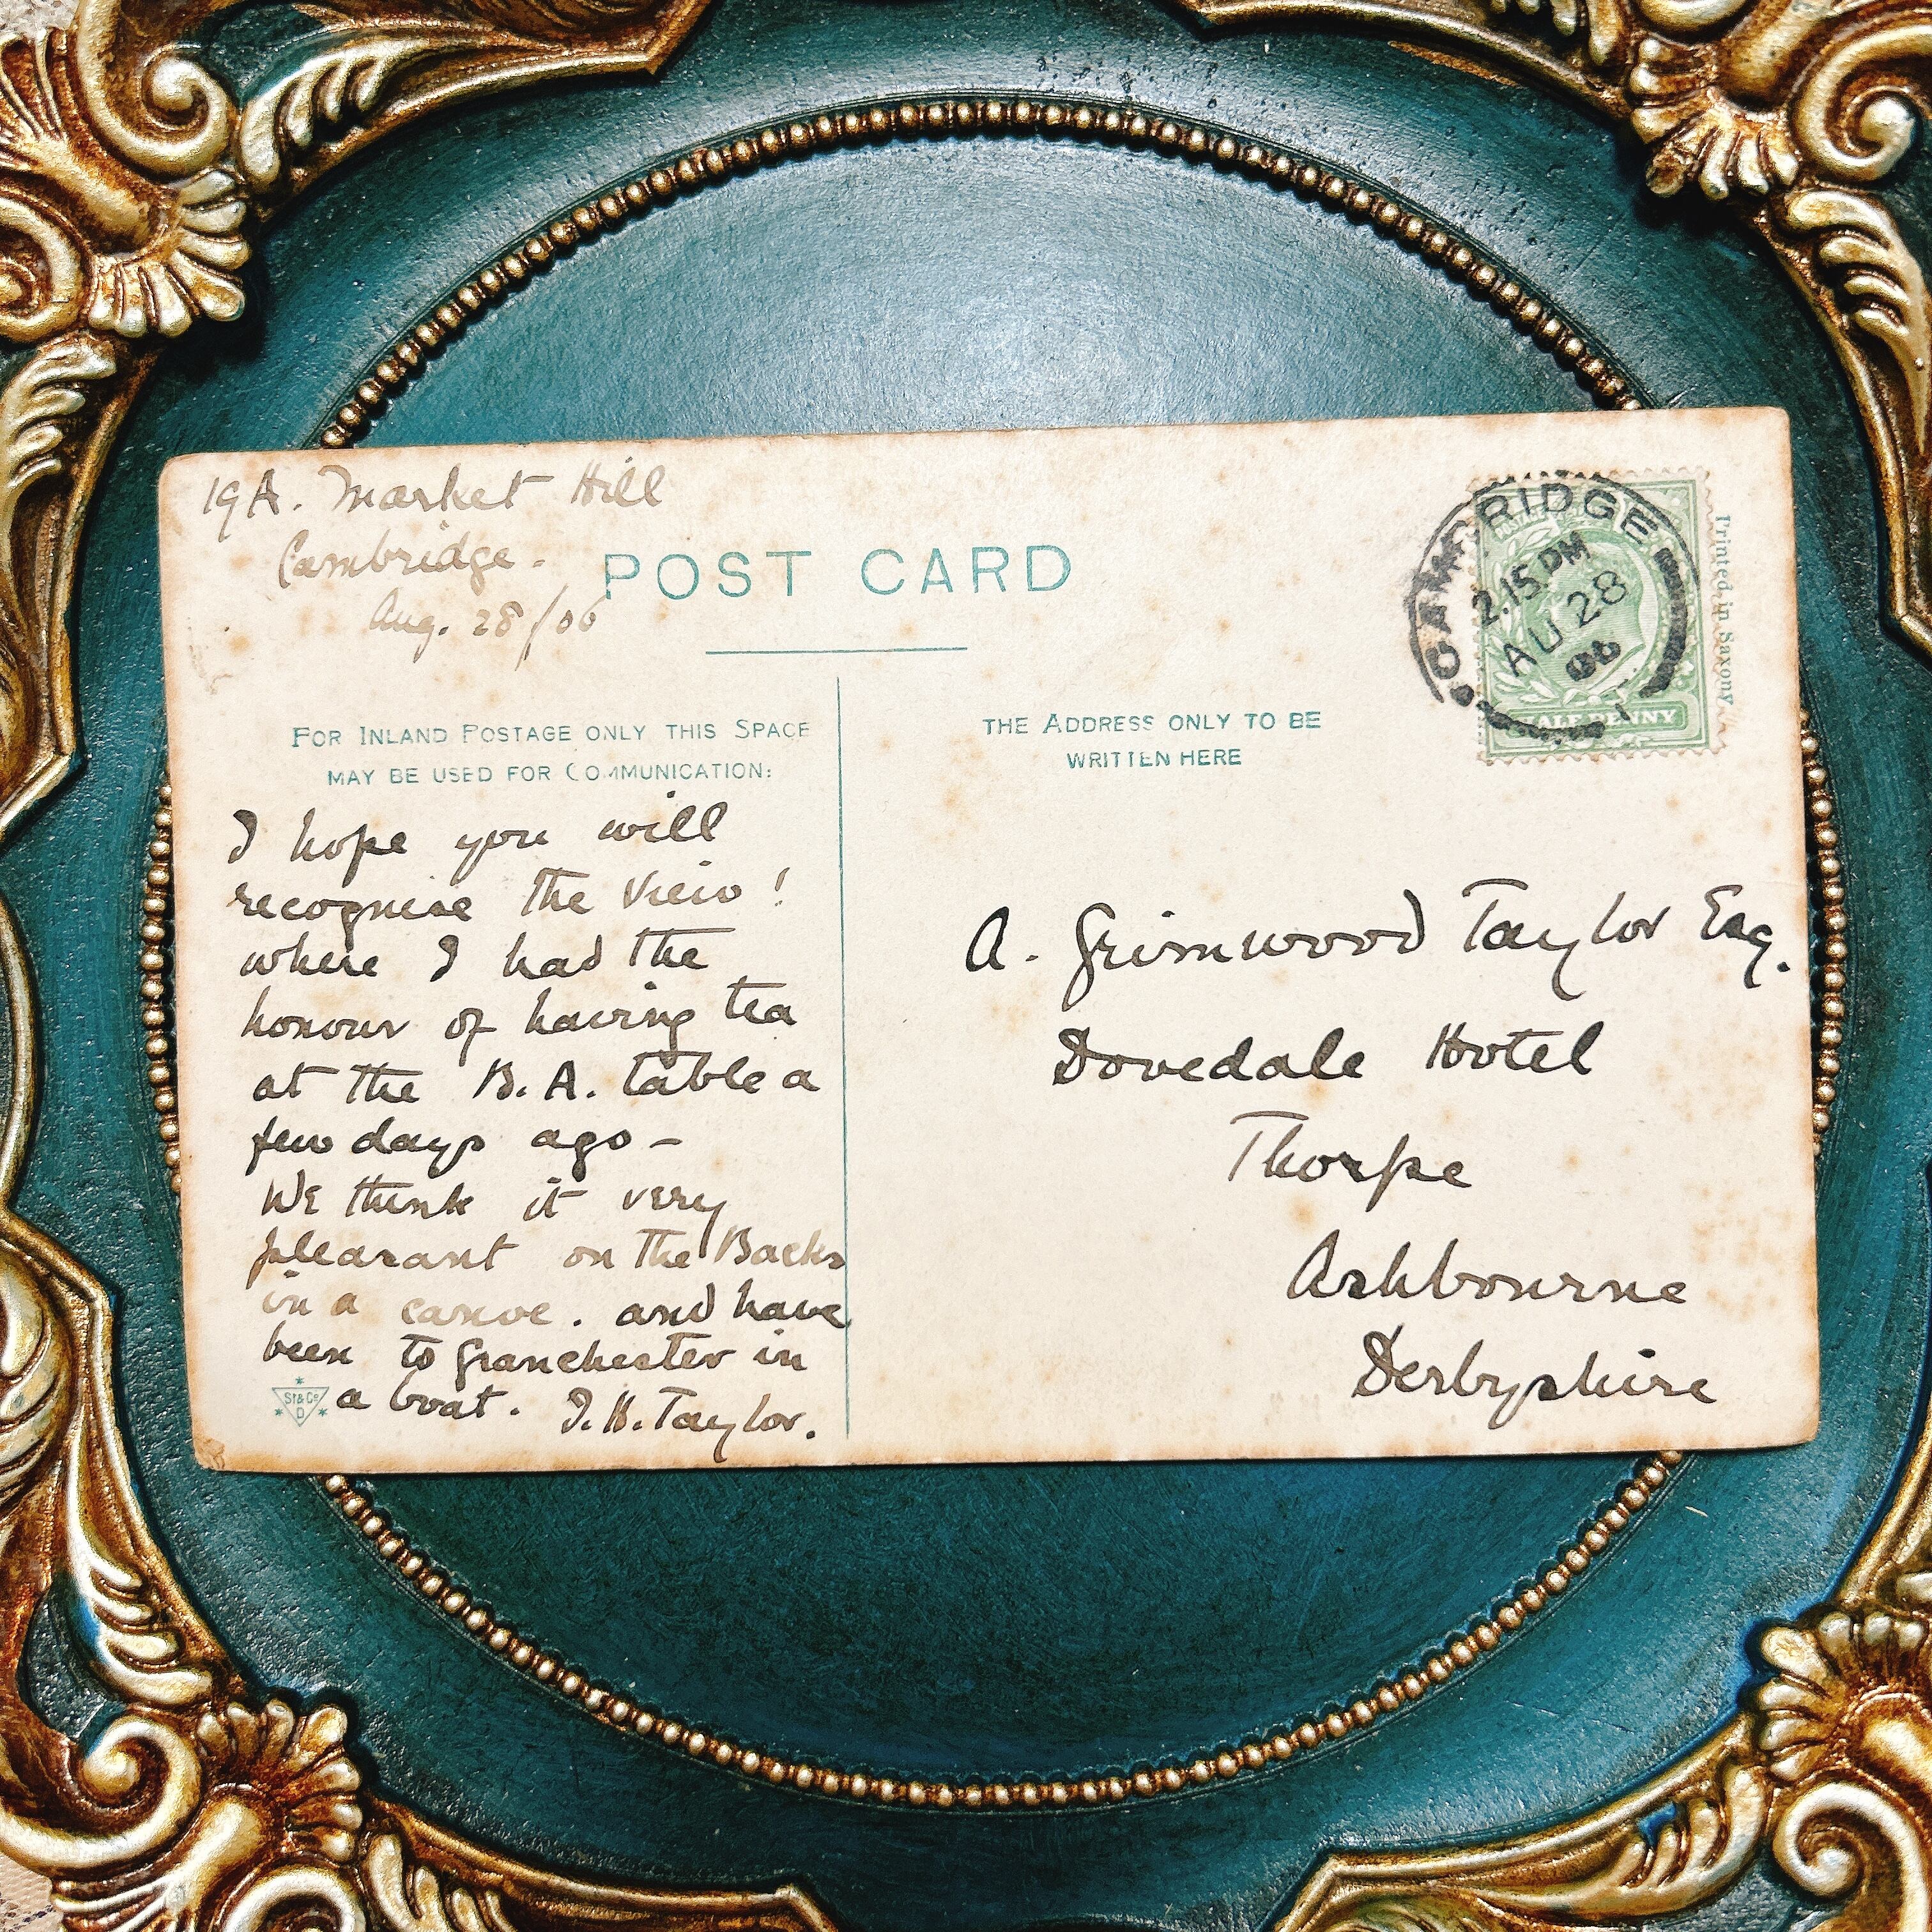 19A. Market Hill
Cambridge.
Aug. 28/06
POST CARD
FOR INLAND POSTAGE ONLY THIS SPACE
MAY BE USED FOR COMMUNICATION:
I hope you will
recognise the view!
where I had the
honour of having tea
at the B.A. table a
few days ago –
We think it very
pleasant on the Backs
in a canoe. and have
been to Granchester in
a boat. J.H. Taylor.
St & Co
D
THE ADDRESS ONLY TO BE
WRITTEN HERE
CAMBRIDGE
2.15 PM
AU 28
06
HALFPENNY
Printed in Saxony
A. Grimwood Taylor Esq.
Dovedale Hotel
Thorpe
Ashbourne
Derbyshire